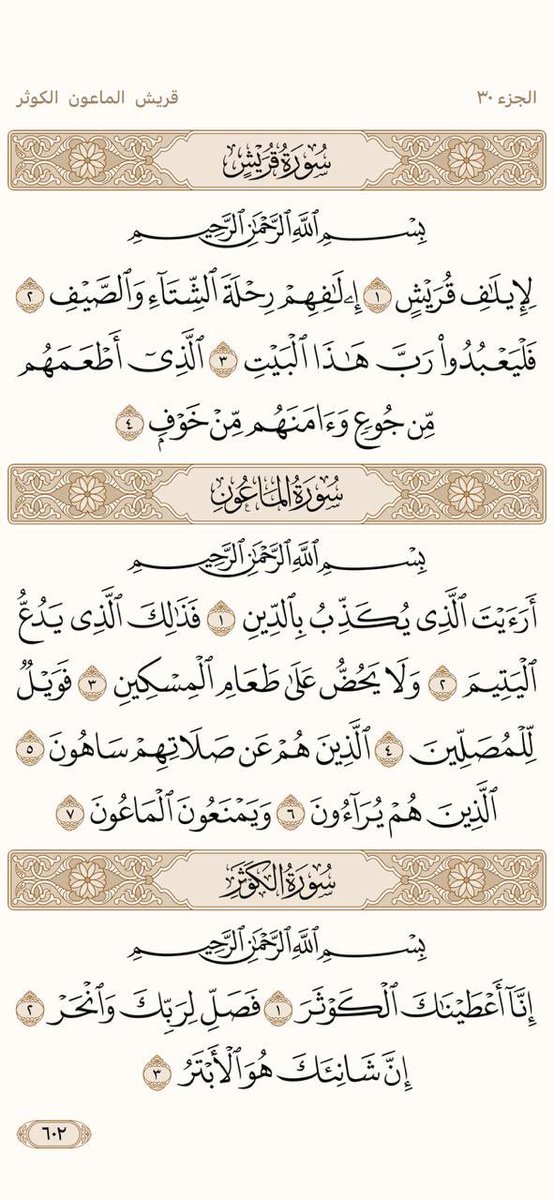 الجزء ٣٠
قريش الماعون الكوثر
سُورَةُ قُرَيْشٍ
بِسْمِ ٱللَّهِ ٱلرَّحْمَٰنِ ٱلرَّحِيمِ
لِإِيلَٰفِ قُرَيْشٍ ١ إِۦلَٰفِهِمْ رِحْلَةَ ٱلشِّتَآءِ وَٱلصَّيْفِ ٢
فَلْيَعْبُدُوا۟ رَبَّ هَٰذَا ٱلْبَيْتِ ٣ ٱلَّذِىٓ أَطْعَمَهُم
مِّن جُوعٍ وَءَامَنَهُم مِّنْ خَوْفٍۭ ٤
سُورَةُ المَاعُونِ
بِسْمِ ٱللَّهِ ٱلرَّحْمَٰنِ ٱلرَّحِيمِ
أَرَءَيْتَ ٱلَّذِى يُكَذِّبُ بِٱلدِّينِ ١ فَذَٰلِكَ ٱلَّذِى يَدُعُّ
ٱلْيَتِيمَ ٢ وَلَا يَحُضُّ عَلَىٰ طَعَامِ ٱلْمِسْكِينِ ٣ فَوَيْلٌ
لِّلْمُصَلِّينَ ٤ ٱلَّذِينَ هُمْ عَن صَلَاتِهِمْ سَاهُونَ ٥
ٱلَّذِينَ هُمْ يُرَآءُونَ ٦ وَيَمْنَعُونَ ٱلْمَاعُونَ ٧
سُورَةُ الكَوْثَرِ
بِسْمِ ٱللَّهِ ٱلرَّحْمَٰنِ ٱلرَّحِيمِ
إِنَّآ أَعْطَيْنَٰكَ ٱلْكَوْثَرَ ١ فَصَلِّ لِرَبِّكَ وَٱنْحَرْ ٢
إِنَّ شَانِئَكَ هُوَ ٱلْأَبْتَرُ ٣
٦٠٢